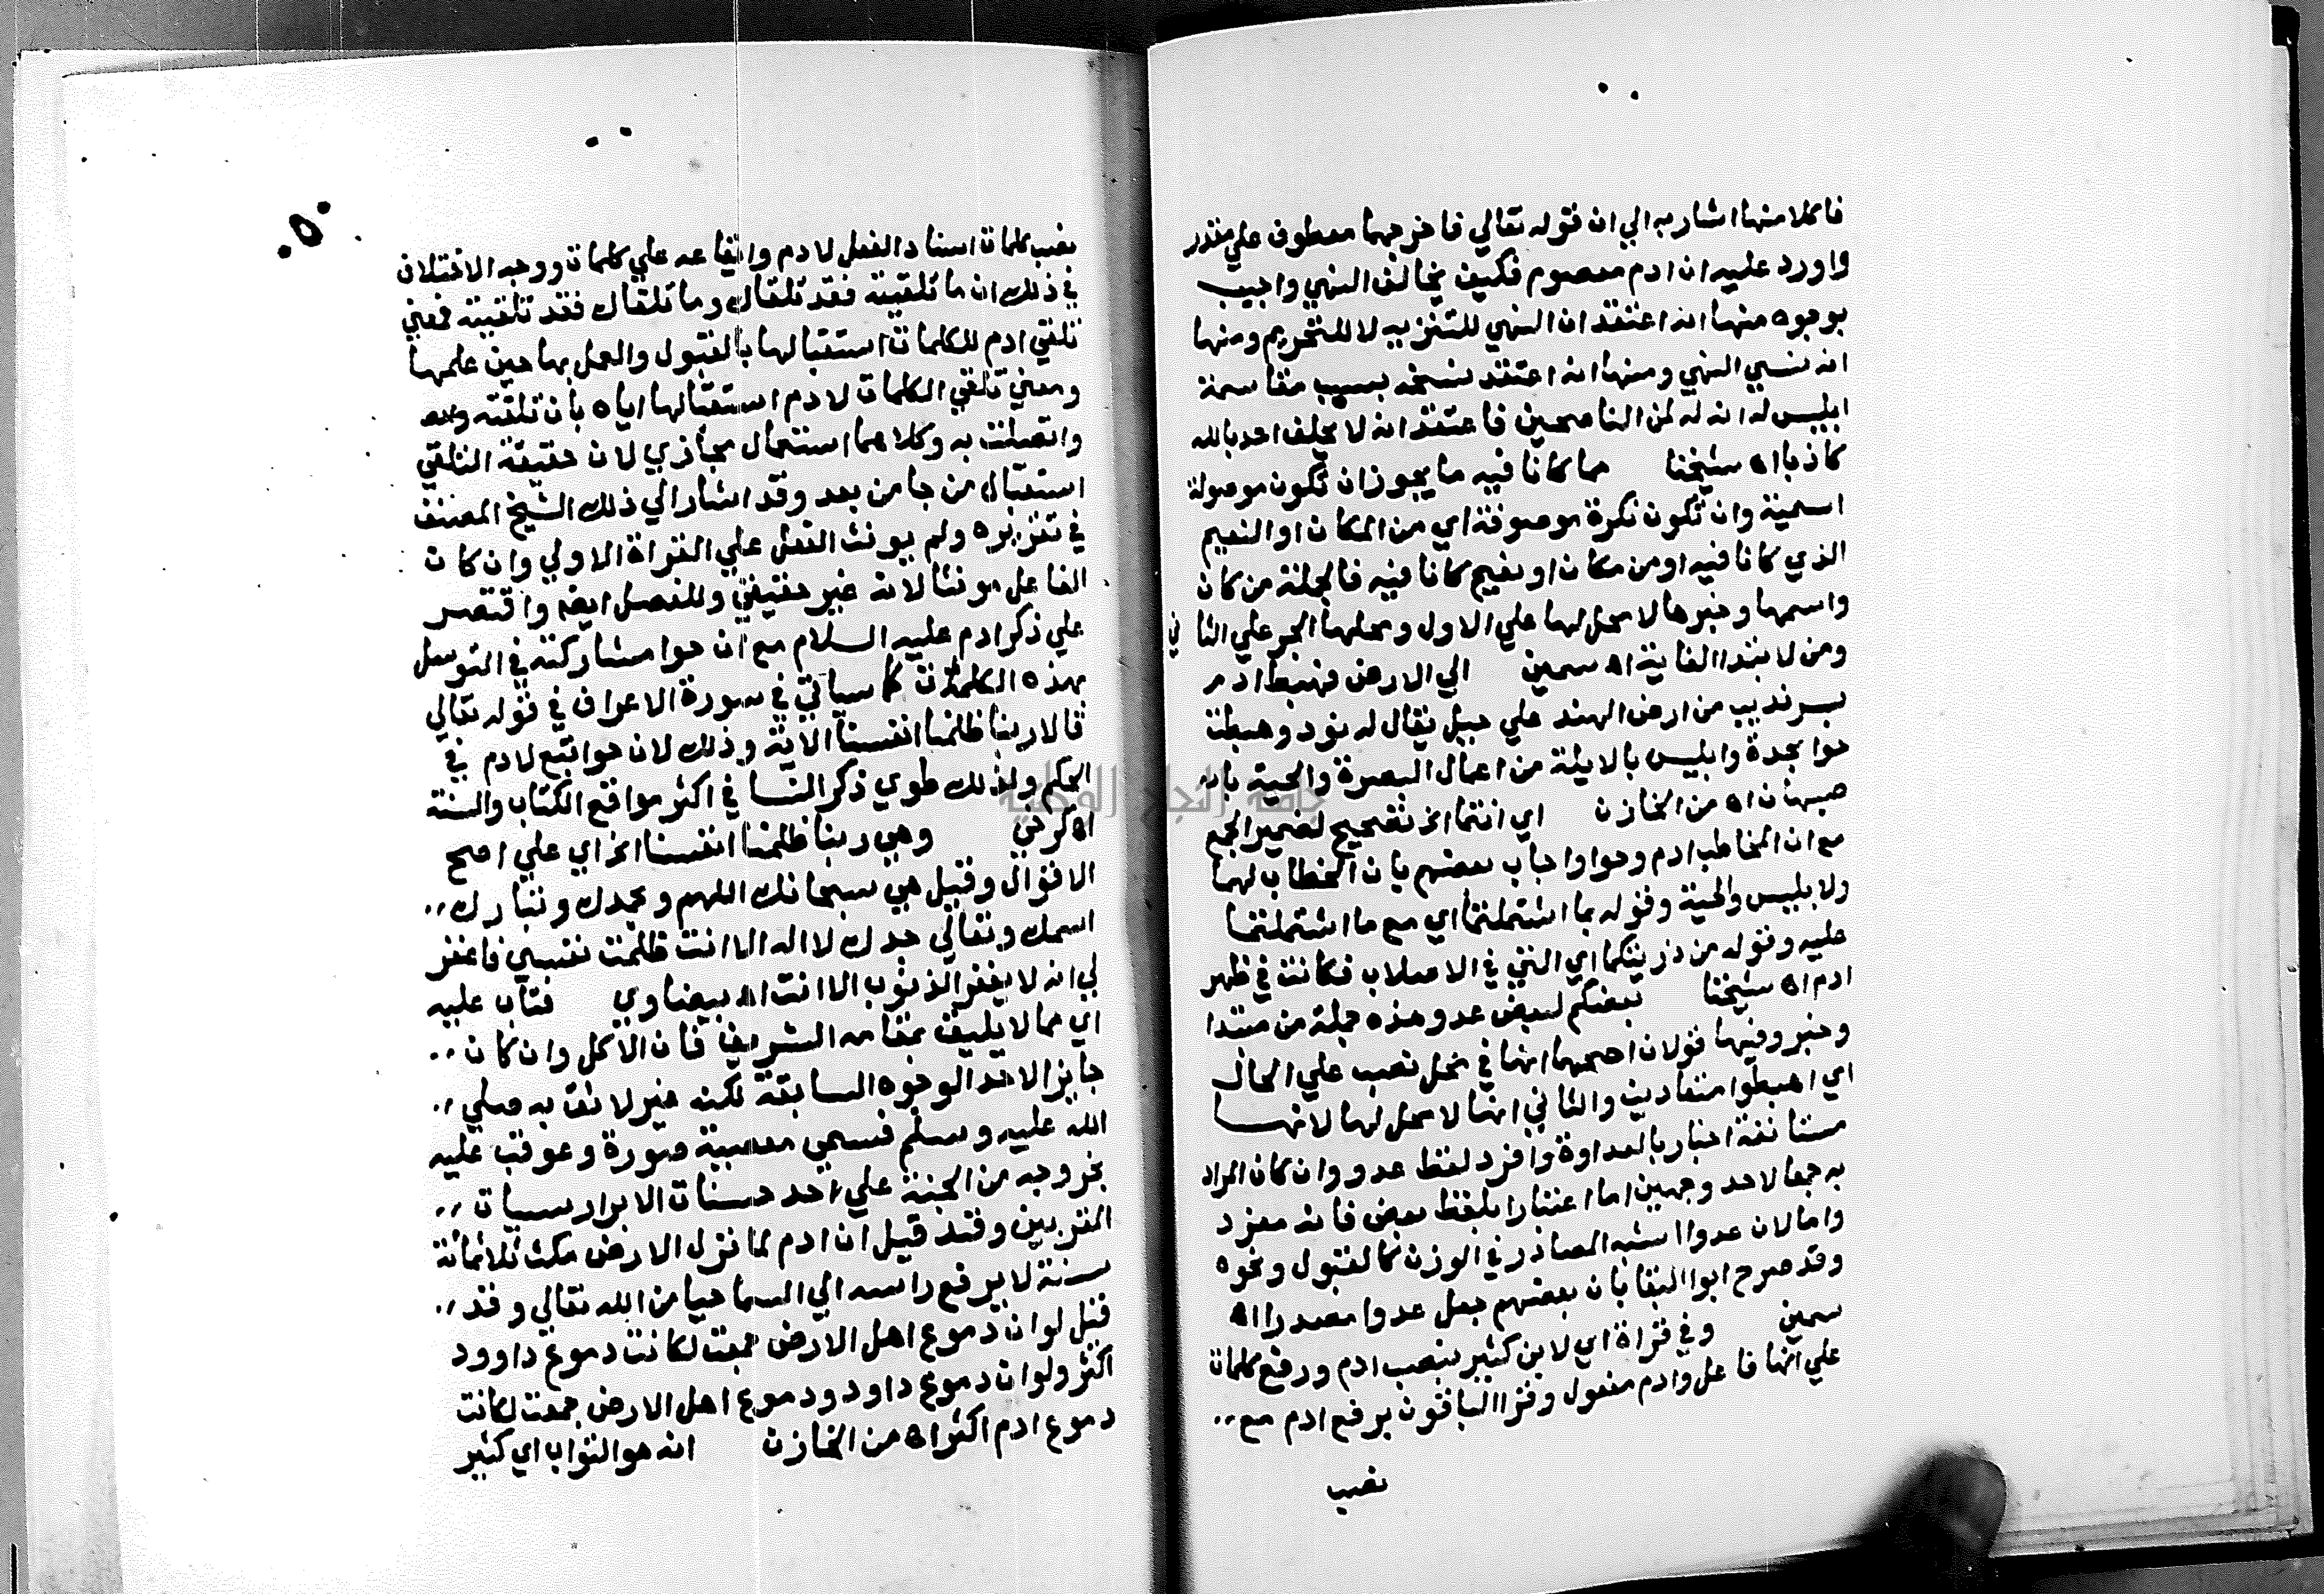 فاكلا منها اشار به الي ان قوله تعالي فاخرجهما معطوف علي مقدر
واورد عليه ان ادم معصوم فكيف يخالف النهي واجيب
بوجوه منها انه اعتقد ان النهي للتنزيه لا للتحريم ومنها
انه نسي النهي ومنها انه اعتقد نسخه بسبب مقاسمة
ابليس له انه له لمن الناصحين فاعتقد انه لا يحلف احد بالله
كاذبا اه شيخنا مما كانا فيه ما يجوز ان تكون موصولة
اسمية وان تكون نكرة موصوفة اي من المكان او النعيم
الذي كانا فيه او من مكان او نعيم كانا فيه فالجملة من كان
واسمها وخبرها لا محل لها علي الاول ومحلها الجر علي الثاني
ومن لابتدا الغاية اه سمين الي الارض فهبط ادم
بسرنديب من ارض الهند علي جبل يقال له نود وهبطت
حوا بجدة وابليس بالايلة من اعمال البصرة والحية باـ
صبهان اه من الخازن اي انتما الخ تصحيح لضمير الجمع
مع ان المخاطب ادم وحوا واجاب بعضهم بان الخطاب لهما
ولابليس والحية وقوله بما اشتملتما اي مع ما اشتملتما
عليه وقوله من ذريتكما اي التي في الاصلاب فكانت في ظهر
ادم اه شيخنا بعضكم لبعض عدو هذه جملة من مبتدا
وخبر وفيها قولان اصحهما انها في محل نصب علي الحال
اي اهبطوا متعادين والثاني انها لا محل لها لانها
مستانفة اخبار بالعداوة وافرد لفظ عدو وان كان المراد
به جمعا لاحد وجهين اما اعتبارا بلفظ بعض فانه مفرد
واما لان عدوا اشبه المصادر في الوزن كالقبول ونحوه
وقد صرح ابوا البقا بان بعضهم جعل عدوا مصدرا اه
سمين وفي قراة اي لابن كثير بنصب ادم ورفع كلمات
علي انها فاعل وادم مفعول وقرا الباقون برفع ادم مع
نصب
٥٠
نصب كلمات اسناد الفعل لادم وايقاعه علي كلمات ووجه الاختلاف
في ذلك ان ما تلقيته فقد تلقاك وما تلقاك فقد تلقيته فمعني
تلقي ادم للكلمات استقبالها بالقبول والعمل بها حين علمها
ومعني تلقي الكلمات لادم استقبالها اياه بان تلقته
واتصلت به وكلاهما استعمال مجازي لان حقيقة التلقي
استقبال من جا من بعد وقد اشار الي ذلك الشيخ المصنف
في تقريره ولم يونث الفعل علي القراة الاولي وان كان
الفاعل مونثا لانه غير حقيقي وللفصل ايضا واقتصر
علي ذكر ادم عليه السلام مع ان حوا مشاركته في التوسل
بهذه الكلمات كما سياتي في سورة الاعراف في قوله تعالي
قالا ربنا ظلمنا انفسنا الاية وذلك لان حوا تبع لادم في
الحكم ولذلك طوي ذكر النسا في اكثر مواقع الكتاب والسنة
اه كرخي وهي ربنا ظلمنا انفسنا الخ اي علي اصح
الاقوال وقيل هي سبحانك اللهم وبحمدك وتبارك
اسمك وتعالي جدك لا اله الا انت ظلمت نفسي فاغفر
لي انه لا يغفر الذنوب الا انت اه بيضاوي فتاب عليه
اي مما لا يليق بمقامه الشريف فان الاكل وان كان
جايزا لاحد الوجوه السابقة لكنه غير لائق به صلي
الله عليه وسلم فسمي معصية صورة وعوقب عليه
بخروجه من الجنة علي احد حسنات الابرار سيات
المقربين وقد قيل ان ادم لما نزل الارض مكث ثلاثمائة
سنة لا يرفع راسه الي السما حيا من الله تعالي وقد
قيل لو ان دموع اهل الارض جمعت لكانت دموع داوود
اكثر ولو ان دموع داود ودموع اهل الارض جمعت لكانت
دموع ادم اكثر اه من الخازن انه هو التواب اي كثير
جامعة النجاح الوطنية